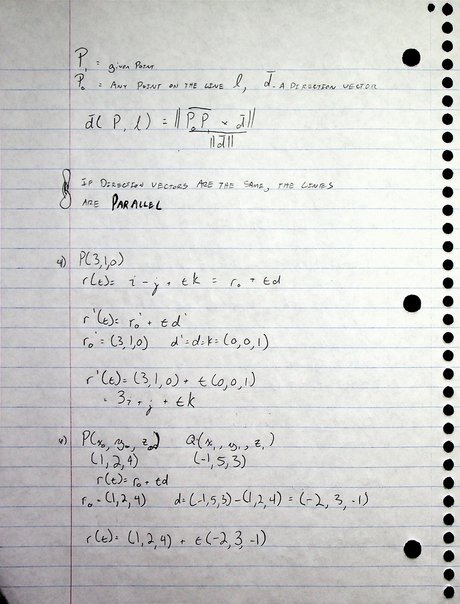 P₁ = given Point
P₀ = ANY POINT ON THE LINE l, d̄ - A DIRECTION VECTOR
d(P, l) = ||P₀P₁ × d̄|| / ||d̄||
IF DIRECTION VECTORS ARE THE SAME, THE LINES
ARE PARALLEL
P(3,1,0)
r(t) = i - j + tk = r₀ + td
r'(t) = r₀' + td'
r₀' = (3,1,0) d' = d = k = (0,0,1)
r'(t) = (3,1,0) + t(0,0,1)
= 3i + j + tk
P(x₀, y₀, z₀) Q(x₁, y₁, z₁)
(1,2,4) (-1,5,3)
r(t) = r₀ + td
r₀ = (1,2,4) d = (-1,5,3) - (1,2,4) = (-2, 3, -1)
r(t) = (1,2,4) + t(-2,3,-1)